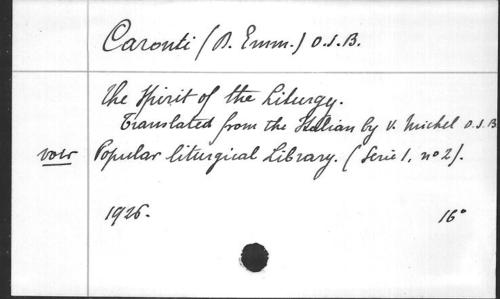 Caronti (D. Emm.) O.S.B.
The Spirit of the Liturgy.
Translated from the Italian by V. Michel O.S.B
voir Popular liturgical Library. (Serie 1, n° 2).
1926. 16°